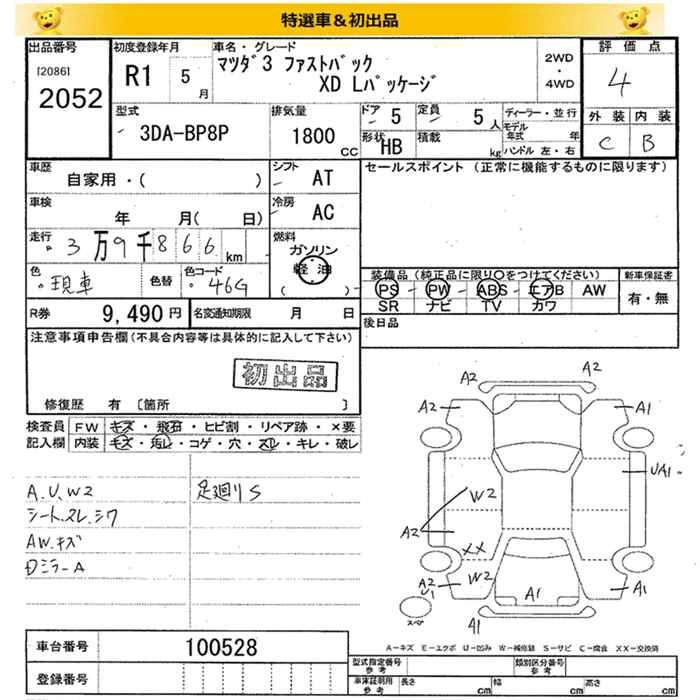 特選車＆初出品
出品番号
[2086]
2052
初度登録年月
R1 5月
車名・グレード
マツダ3 ファストバック
XD Lパッケージ
2WD
・
4WD
評価点
4
外装 内装
C B
型式
3DA-BP8P
排気量
1800
CC
ドア 5
定員 5人
形状 HB
積載 kg
ディーラー・並行
モデル年式 年
ハンドル 左・右
車歴
自家用・( )
シフト
AT
セールスポイント (正常に機能するものに限ります)
車検
年 月( 日)
冷房
AC
走行
3万9千866km
燃料
ガソリン
軽油
( )
色
現車
色替
色コード
46G
装備品 (純正品に限り○をつけてください)
PS ・ PW ・ ABS ・ エアB AW
SR ナビ TV カワ
新車保証書
有・無
R券 9,490円
名変通知期限 月 日
後日品
注意事項申告欄 (不具合内容等は具体的に記入して下さい)
初出品
修復歴 有 [箇所 ]
検査員記入欄
FW キズ・飛石・ヒビ割・リペア跡・×要
内装 キズ・汚レ・コゲ・穴・スレ・キレ・破レ
A.U.W2
足廻りS
シート.スレ.シワ
AW.キズ
Dミラー A
A2
A2
A2
A1
UA1
W2
A2
XX
A2
U1
W2
A1
A1
A1
スペ
A−キズ E−エクボ U−凹み W−補修跡 S−サビ C−腐食 XX−交換済
車台番号 100528
登録番号
型式指定番号
参考
類別区分番号
参考
車庫証明用
参考
長さ cm
幅 cm
高さ cm